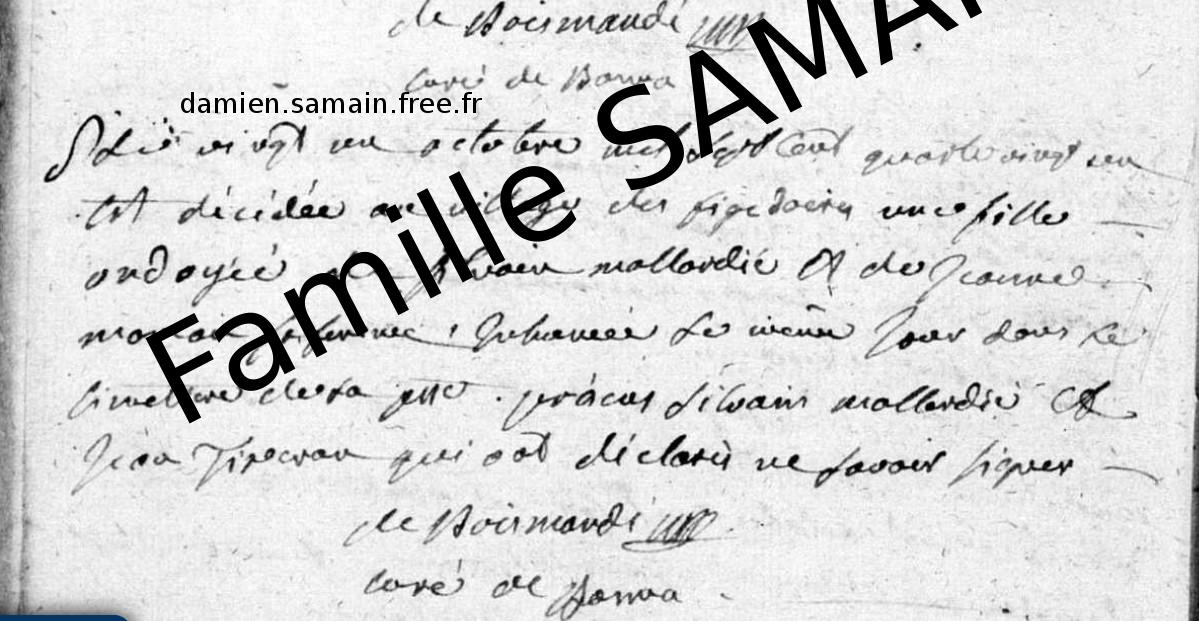 de Boismandé
curé de Bonna
damien.samain.free.fr
Famille SAMA
vingt un octobre mil sept Cent quatrevingt un
est décédée au village des une fille
ondoyée de Silvain mallardié Et de Jeanne
sa femme, Inhumée le même Jour dans le
Cimetiere de sa psse. présens Silvain mallardié Et
Jean qui ont déclarés ne savoir signer
de Boismandé
curé de Bonna